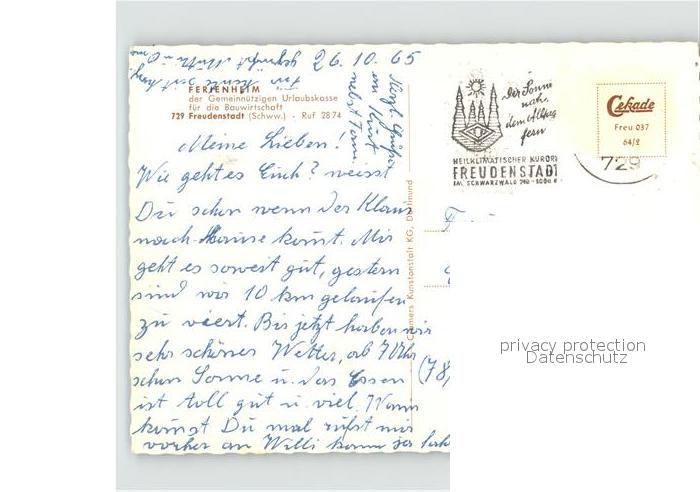 26.10.65
FERIENHEIM
der Gemeinnützigen Urlaubskasse
für die Bauwirtschaft
729 Freudenstadt (Schww.) - Ruf 2874
Meine Lieben!
Wie geht es Euch? weisst
Du schon wenn der Klaus
nach Hause kommt. Mir
geht es soweit gut, gestern
sind wir 10 km gelaufen
zu viert. Bis jetzt haben wir
sehr schönes Wetter, ab 7 Uhr
schon Sonne u. das Essen
ist toll gut u. viel. Wann
kommst Du mal rufst mir
vorher an Willi kann ja
Cramers Kunstanstalt KG, Dortmund
der Sonne
nah,
dem Alltag
fern
HEILKLIMATISCHER KURORT
FREUDENSTADT
IM SCHWARZWALD 740-1000 m
Cekade
Freu 037
64/2
729
(78
privacy protection
Datenschutz